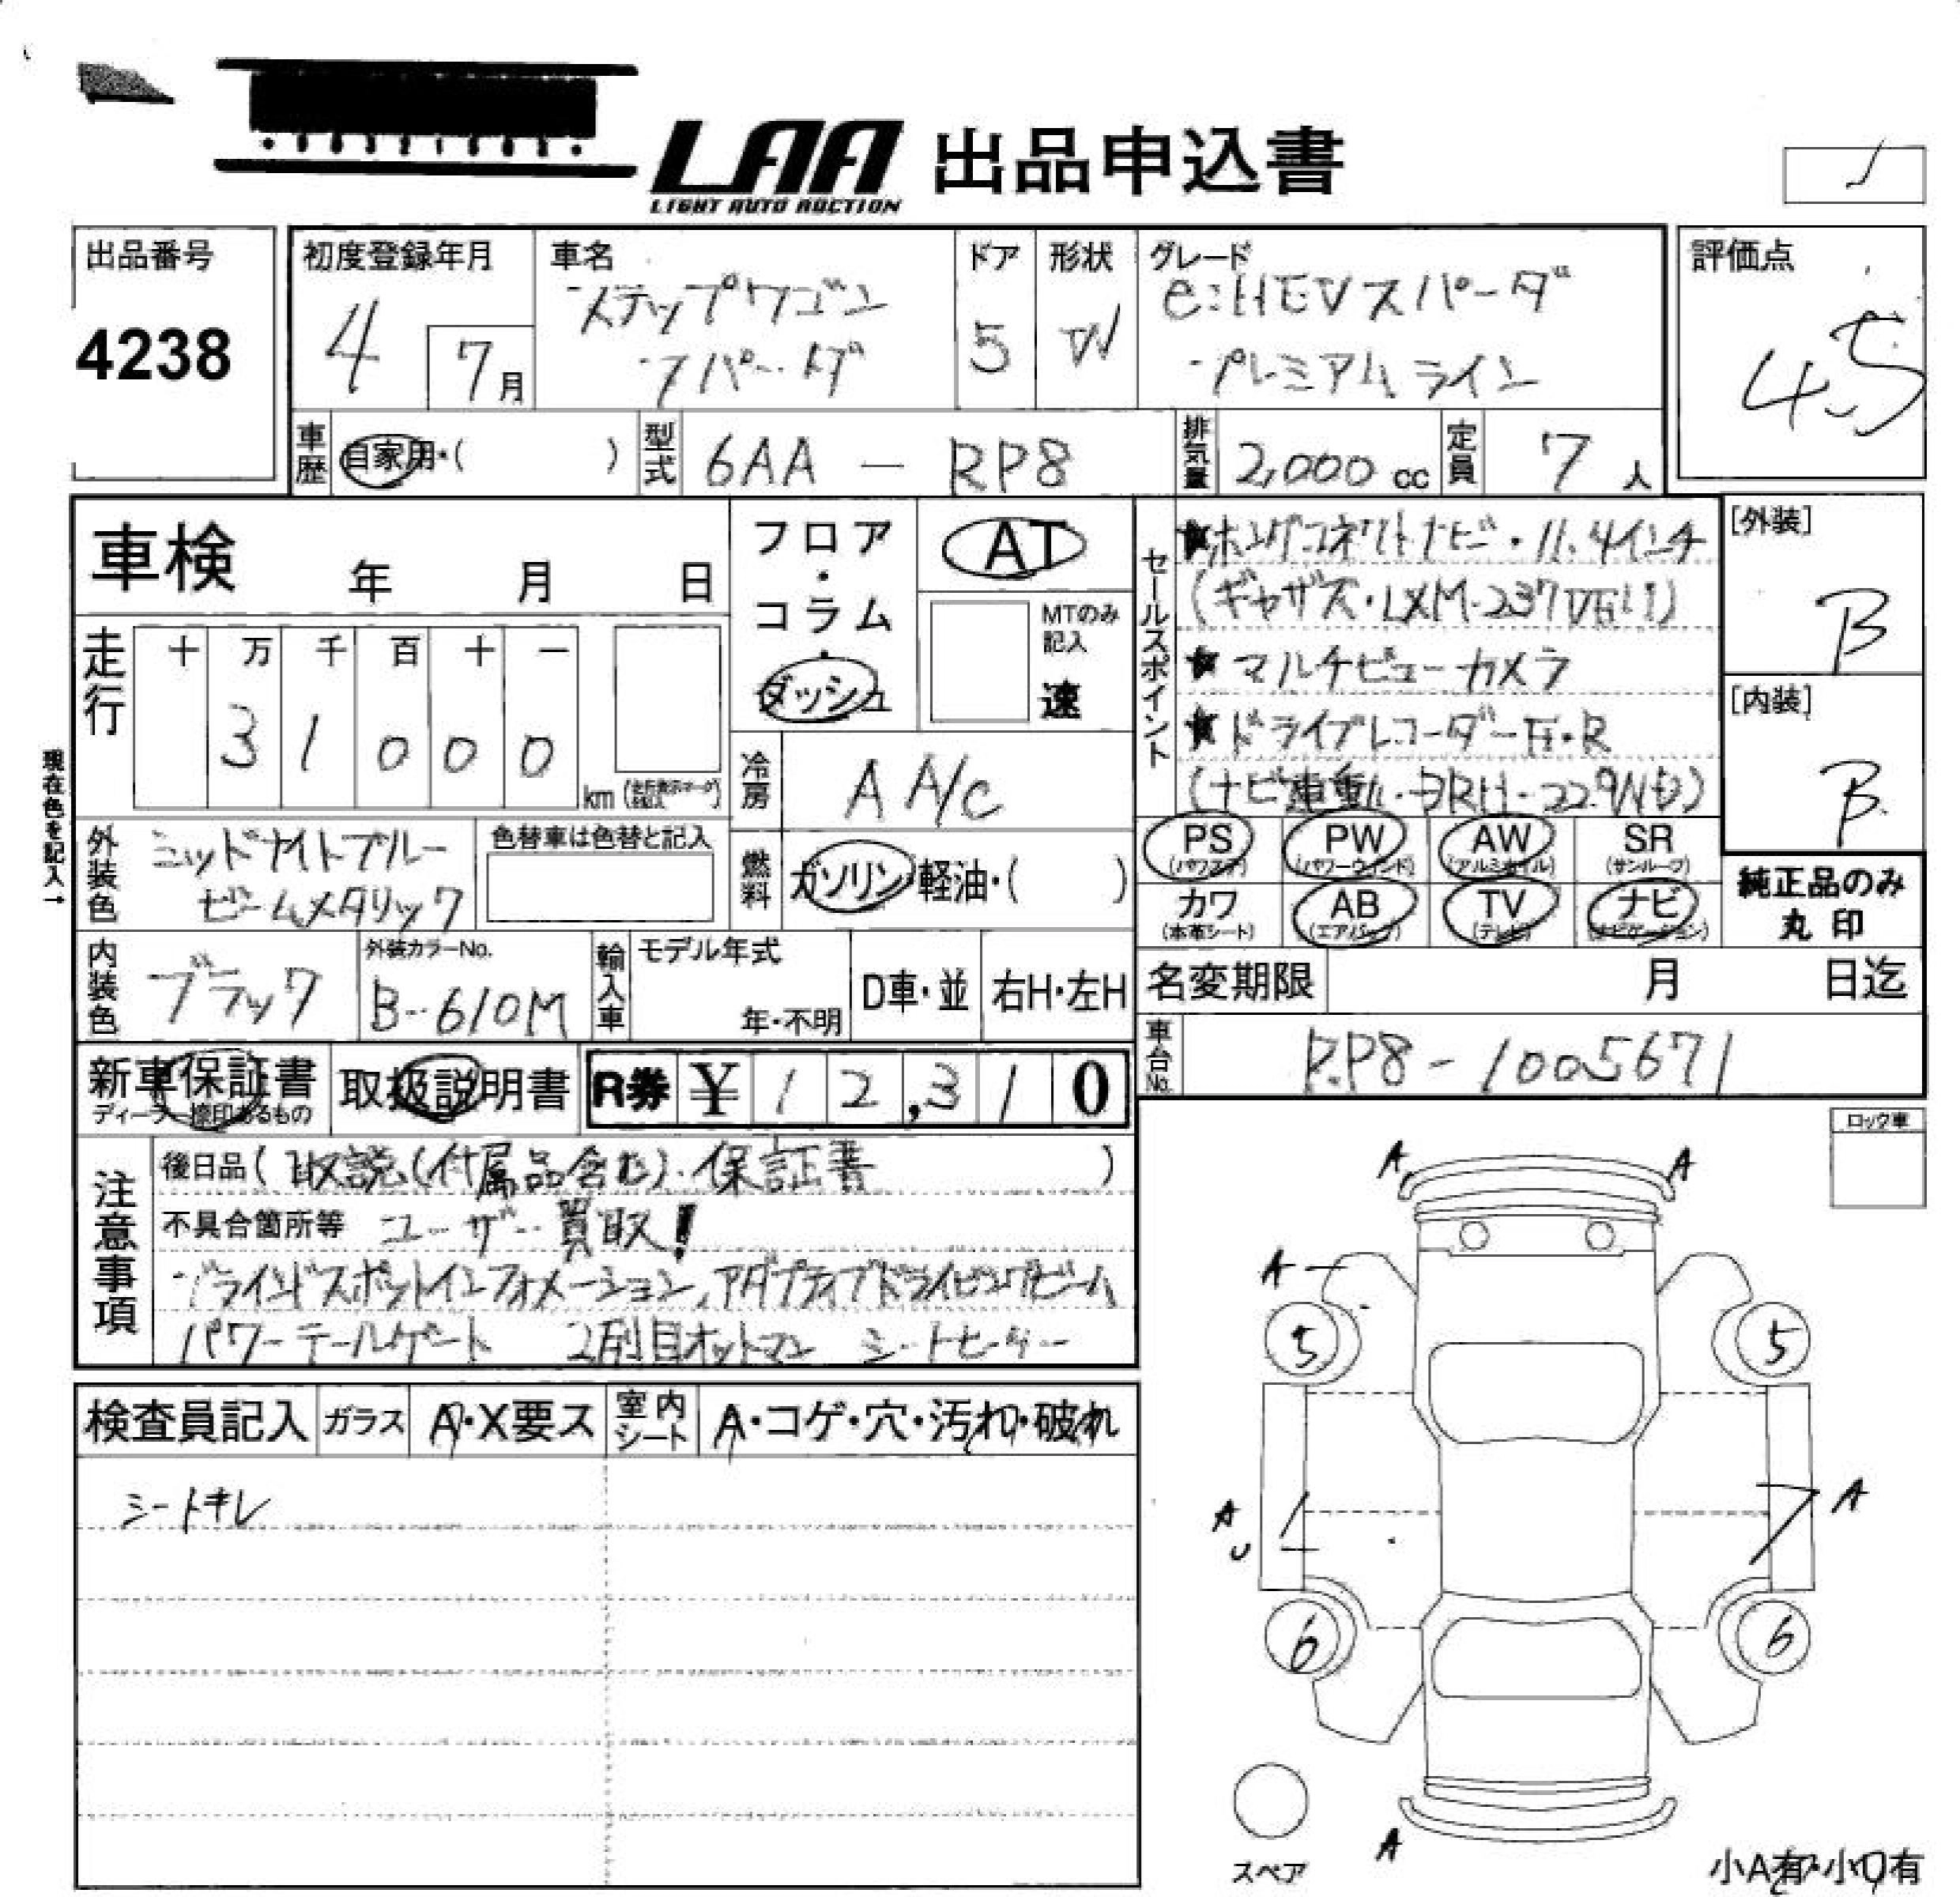 LAA 出品申込書
LIGHT AUTO AUCTION
出品番号
4238
初度登録年月
4 7月
車名
ステップワゴン
スパーダ
ドア
5
形状
W
グレード
e:HEVスパーダ
プレミアムライン
評価点
4.5
車歴 自家用・( )
型式 6AA — RP8
排気量 2,000 cc
定員 7 人
車検 年 月 日
フロア・コラム・ダッシュ
AT
MTのみ記入
速
セールスポイント
★ホンダコネクトナビ・11.4インチ
(ギャザズ・LXM-237VFLi)
★マルチビューカメラ
★ドライブレコーダーF・R
[外装]
B
[内装]
B
走行
十 万 千 百 十 一
3 1 0 0 0
km
現在色を記入→
冷房 A A/C
外装色 ミッドナイトブルー
ビームメタリック
色替車は色替と記入
燃料 ガソリン・軽油・( )
PS (パワステ) PW (パワーウィンドウ) AW (アルミホイル) SR (サンルーフ)
カワ (本革シート) AB (エアバック) TV (テレビ) ナビ (ナビゲーション)
純正品のみ
丸印
内装色 ブラック
外装カラーNo.
B-610M
輸入車
モデル年式
年・不明
D車・並
右H・左H
名変期限 月 日迄
車台No. RP8-1005671
新車保証書
ディーラー捺印あるもの
取扱説明書
R券 ¥ 12,310
注意事項
後日品(取説(付属品含む)・保証書 )
不具合箇所等 ユーザー買取!
ブラインドスポットインフォメーション、アダプティブドライビングビーム
パワーテールゲート 2列目オットマン シートヒーター
ロック車
検査員記入 ガラス A・X要ス 室内シート A・コゲ・穴・汚れ・破れ
シートキレ
A A
A
5 5
A
A
U
6 6
A
スペア
小A有・小U有